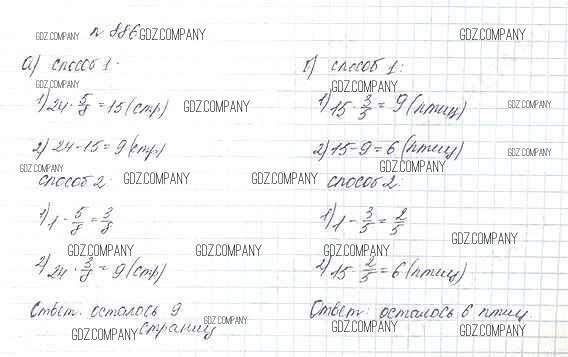 № 886 GDZ.COMPANY
GDZ.COMPANY
GDZ.COMPANY
а) способ 1.
GDZ.COMPANY
1) 24 · 5/8 = 15 (стр)
GDZ.COMPANY
2) 24 - 15 = 9 (стр)
GDZ.COMPANY
способ 2.
GDZ.COMPANY
1) 1 - 5/8 = 3/8
GDZ.COMPANY
GDZ.COMPANY
2) 24 · 3/8 = 9 (стр)
Ответ. осталось 9
страниц
GDZ.COMPANY
GDZ.COMPANY
б) способ 1:
GDZ.COMPANY
1) 15 · 3/5 = 9 (птиц)
GDZ.COMPANY
2) 15 - 9 = 6 (птиц)
GDZ.COMPANY
GDZ.COMPANY
GDZ.COMPANY
способ 2.
1) 1 - 3/5 = 2/5
GDZ.COMPANY
GDZ.COMPANY
2) 15 · 2/5 = 6 (птиц)
Ответ: осталось 6 птиц.
GDZ.COMPANY
GDZ.COMPANY